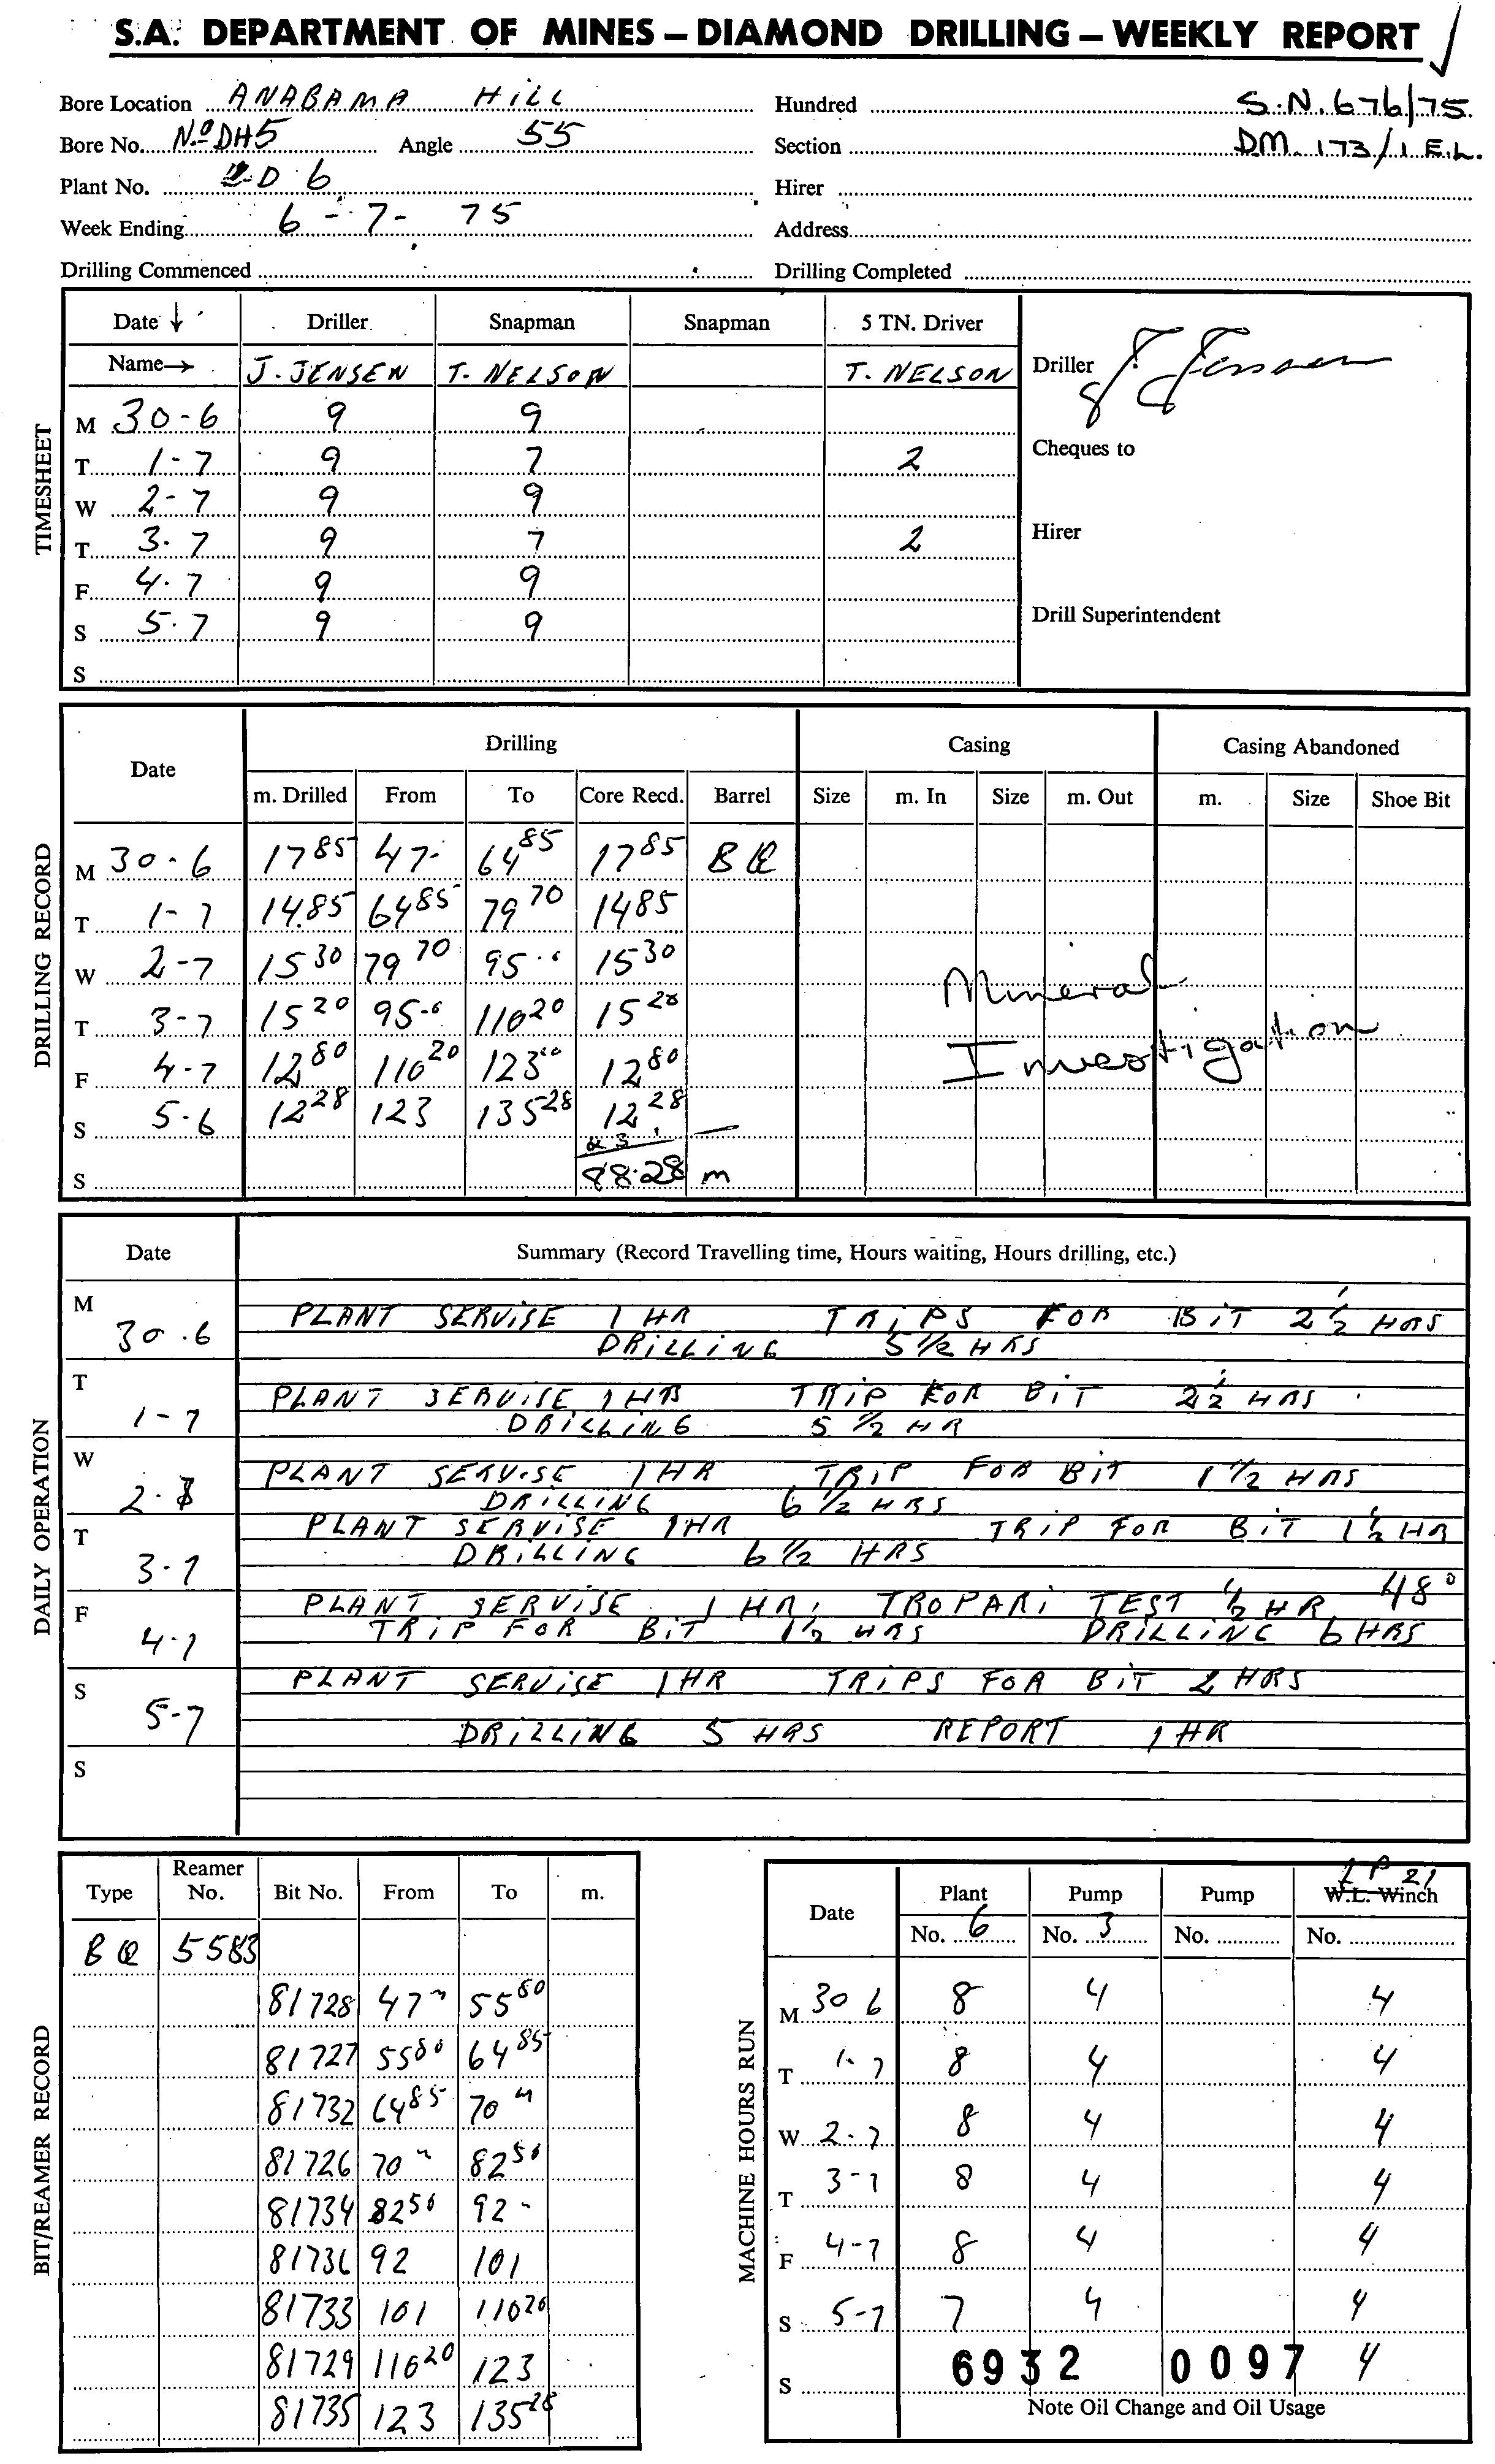 S.A. DEPARTMENT OF MINES – DIAMOND DRILLING – WEEKLY REPORT
Bore Location ANABAMA HILL Hundred S.N. 676/75.
Bore No. Nº DH5 Angle 55 Section DM. 173/1 E.L.
Plant No. D 6 Hirer
Week Ending 6 - 7 - 75 Address
Drilling Commenced Drilling Completed
TIMESHEET
Date ↓ Driller Snapman Snapman 5 TN. Driver
Name→ J. JENSEN T. NELSON T. NELSON Driller J. Jensen
M 30-6 9 9
T 1-7 9 7 2 Cheques to
W 2-7 9 9
T 3.7 9 7 2 Hirer
F 4.7 9 9
S 5.7 9 9 Drill Superintendent
S
DRILLING RECORD
Date Drilling Casing Casing Abandoned
m. Drilled From To Core Recd. Barrel Size m. In Size m. Out m. Size Shoe Bit
M 30-6 17 85 47- 64 85 17 85 BQ
T 1-7 14.85 64 85 79 70 14 85
W 2-7 15 30 79 70 95 15 30
T 3-7 15 20 95 110 20 15 20
F 4-7 12 80 110 20 123 12 80
S 5.6 12 28 123 135 28 12 28
S 88.28 m
Mineral
Investigation
DAILY OPERATION
Date Summary (Record Travelling time, Hours waiting, Hours drilling, etc.)
M 30.6 PLANT SERVISE 1 HR TRIPS FOR BIT 2 1/2 HRS
DRILLING 5 1/2 HRS
T 1-7 PLANT SERVISE 1 HR TRIP FOR BIT 2 1/2 HRS
DRILLING 5 1/2 HR
W 2.7 PLANT SERVISE 1 HR TRIP FOR BIT 1 1/2 HRS
DRILLING 6 1/2 HRS
T 3.7 PLANT SERVISE 1 HR TRIP FOR BIT 1 1/2 HR
DRILLING 6 1/2 HRS
F 4.7 PLANT SERVISE 1 HR, TROPARI TEST 1/2 HR 48°
TRIP FOR BIT 1 1/2 HRS DRILLING 6 HRS
S 5-7 PLANT SERVISE 1 HR TRIPS FOR BIT 2 HRS
DRILLING 5 HRS REPORT 1 HR
S
BIT/REAMER RECORD
Type Reamer No. Bit No. From To m.
BQ 5583
81728 47 55 80
81727 55 80 64 85
81732 64 85 70
81726 70 82 50
81734 82 50 92
81736 92 101
81733 101 110 20
81729 110 20 123
81735 123 135 28
MACHINE HOURS RUN
Date Plant Pump Pump W.L. Winch LP 21
No. 6 No. 3 No. No.
M 30 6 8 4 4
T 1-7 8 4 4
W 2-7 8 4 4
T 3-7 8 4 4
F 4-7 8 4 4
S 5-7 7 4 4
S 6932 0097 4
Note Oil Change and Oil Usage